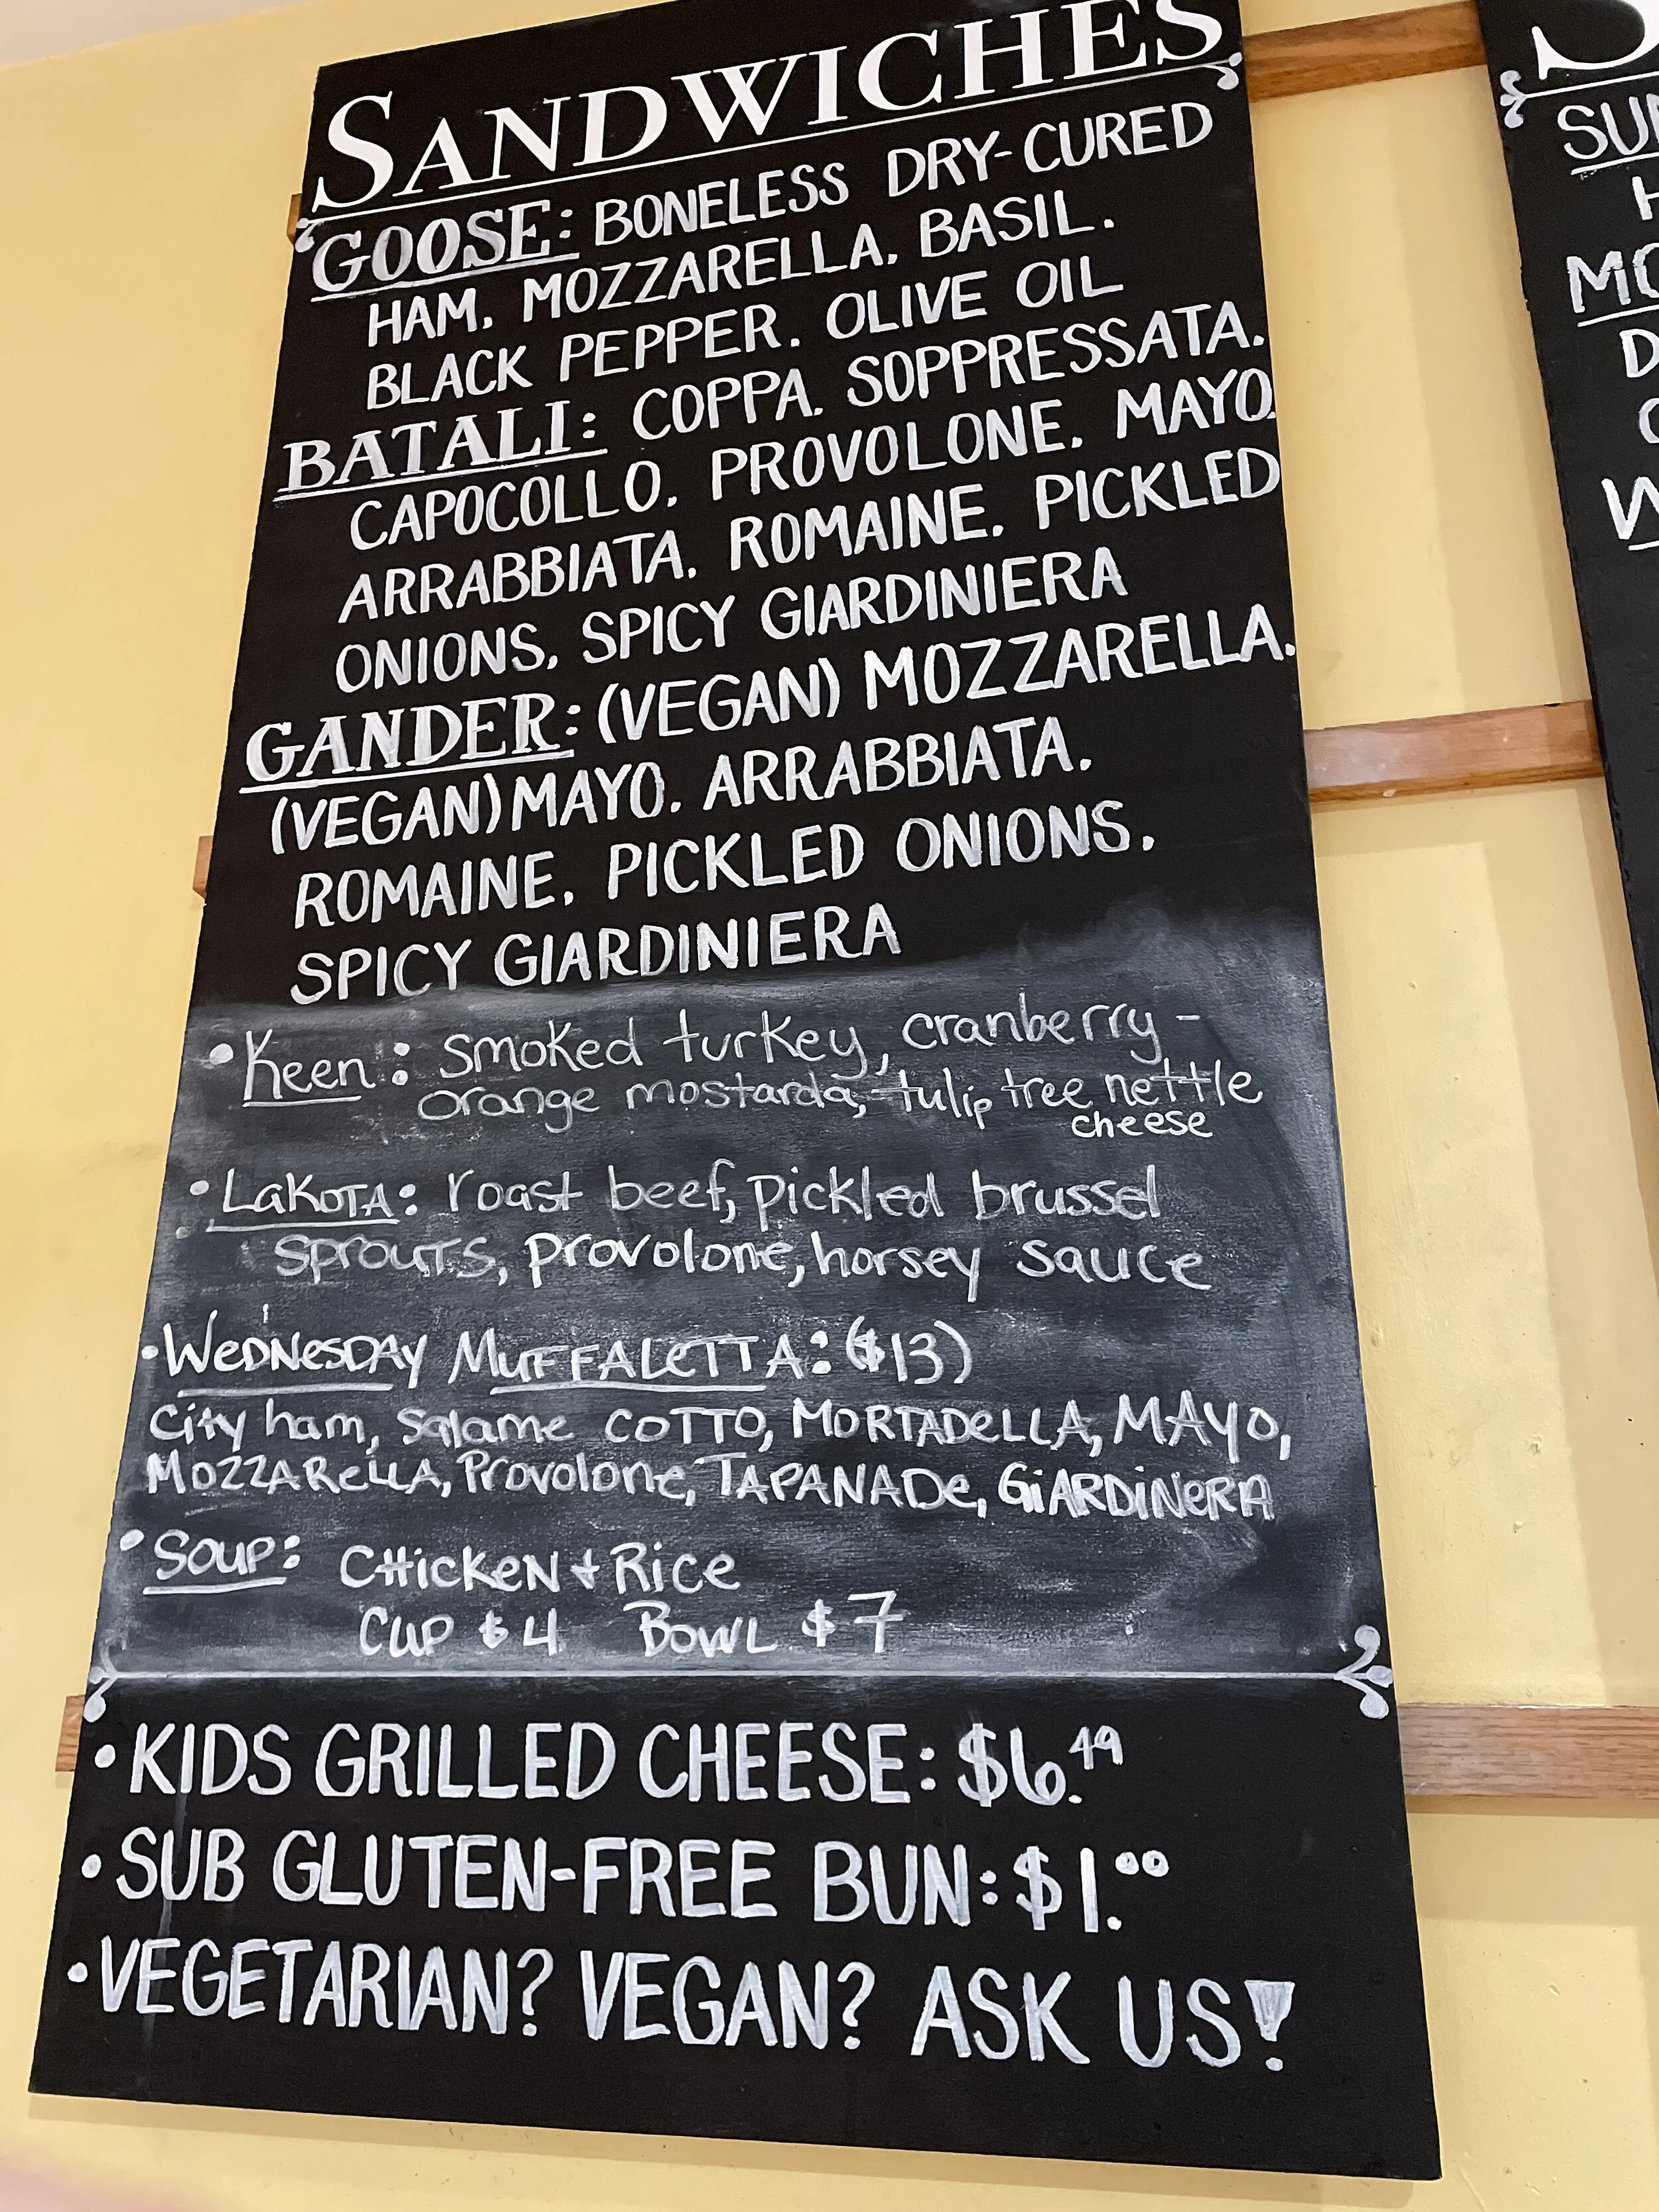 SANDWICHES
GOOSE: BONELESS DRY-CURED
HAM. MOZZARELLA. BASIL.
BLACK PEPPER. OLIVE OIL
BATALI: COPPA. SOPPRESSATA.
CAPOCOLLO. PROVOLONE. MAYO.
ARRABBIATA. ROMAINE. PICKLED
ONIONS. SPICY GIARDINIERA
GANDER: (VEGAN) MOZZARELLA.
(VEGAN) MAYO. ARRABBIATA.
ROMAINE. PICKLED ONIONS.
SPICY GIARDINIERA
•Keen: smoked turkey, cranberry-
orange mostarda, tulip tree nettle
cheese
•LaKOTA: roast beef, pickled brussel
sprouTs, provolone, horsey sauce
•WeDNesDAy MuFFALeTTA: ($13)
City ham, salame COTTO, MORTADeLLA, MAyo,
MOZZAReLLA, Provolone, TAPANADe, GiARDiNeRA
•Soup: CHickeN + Rice
Cup $4 BowL $7
•KIDS GRILLED CHEESE: $6.49
•SUB GLUTEN-FREE BUN: $1.00
•VEGETARIAN? VEGAN? ASK US!